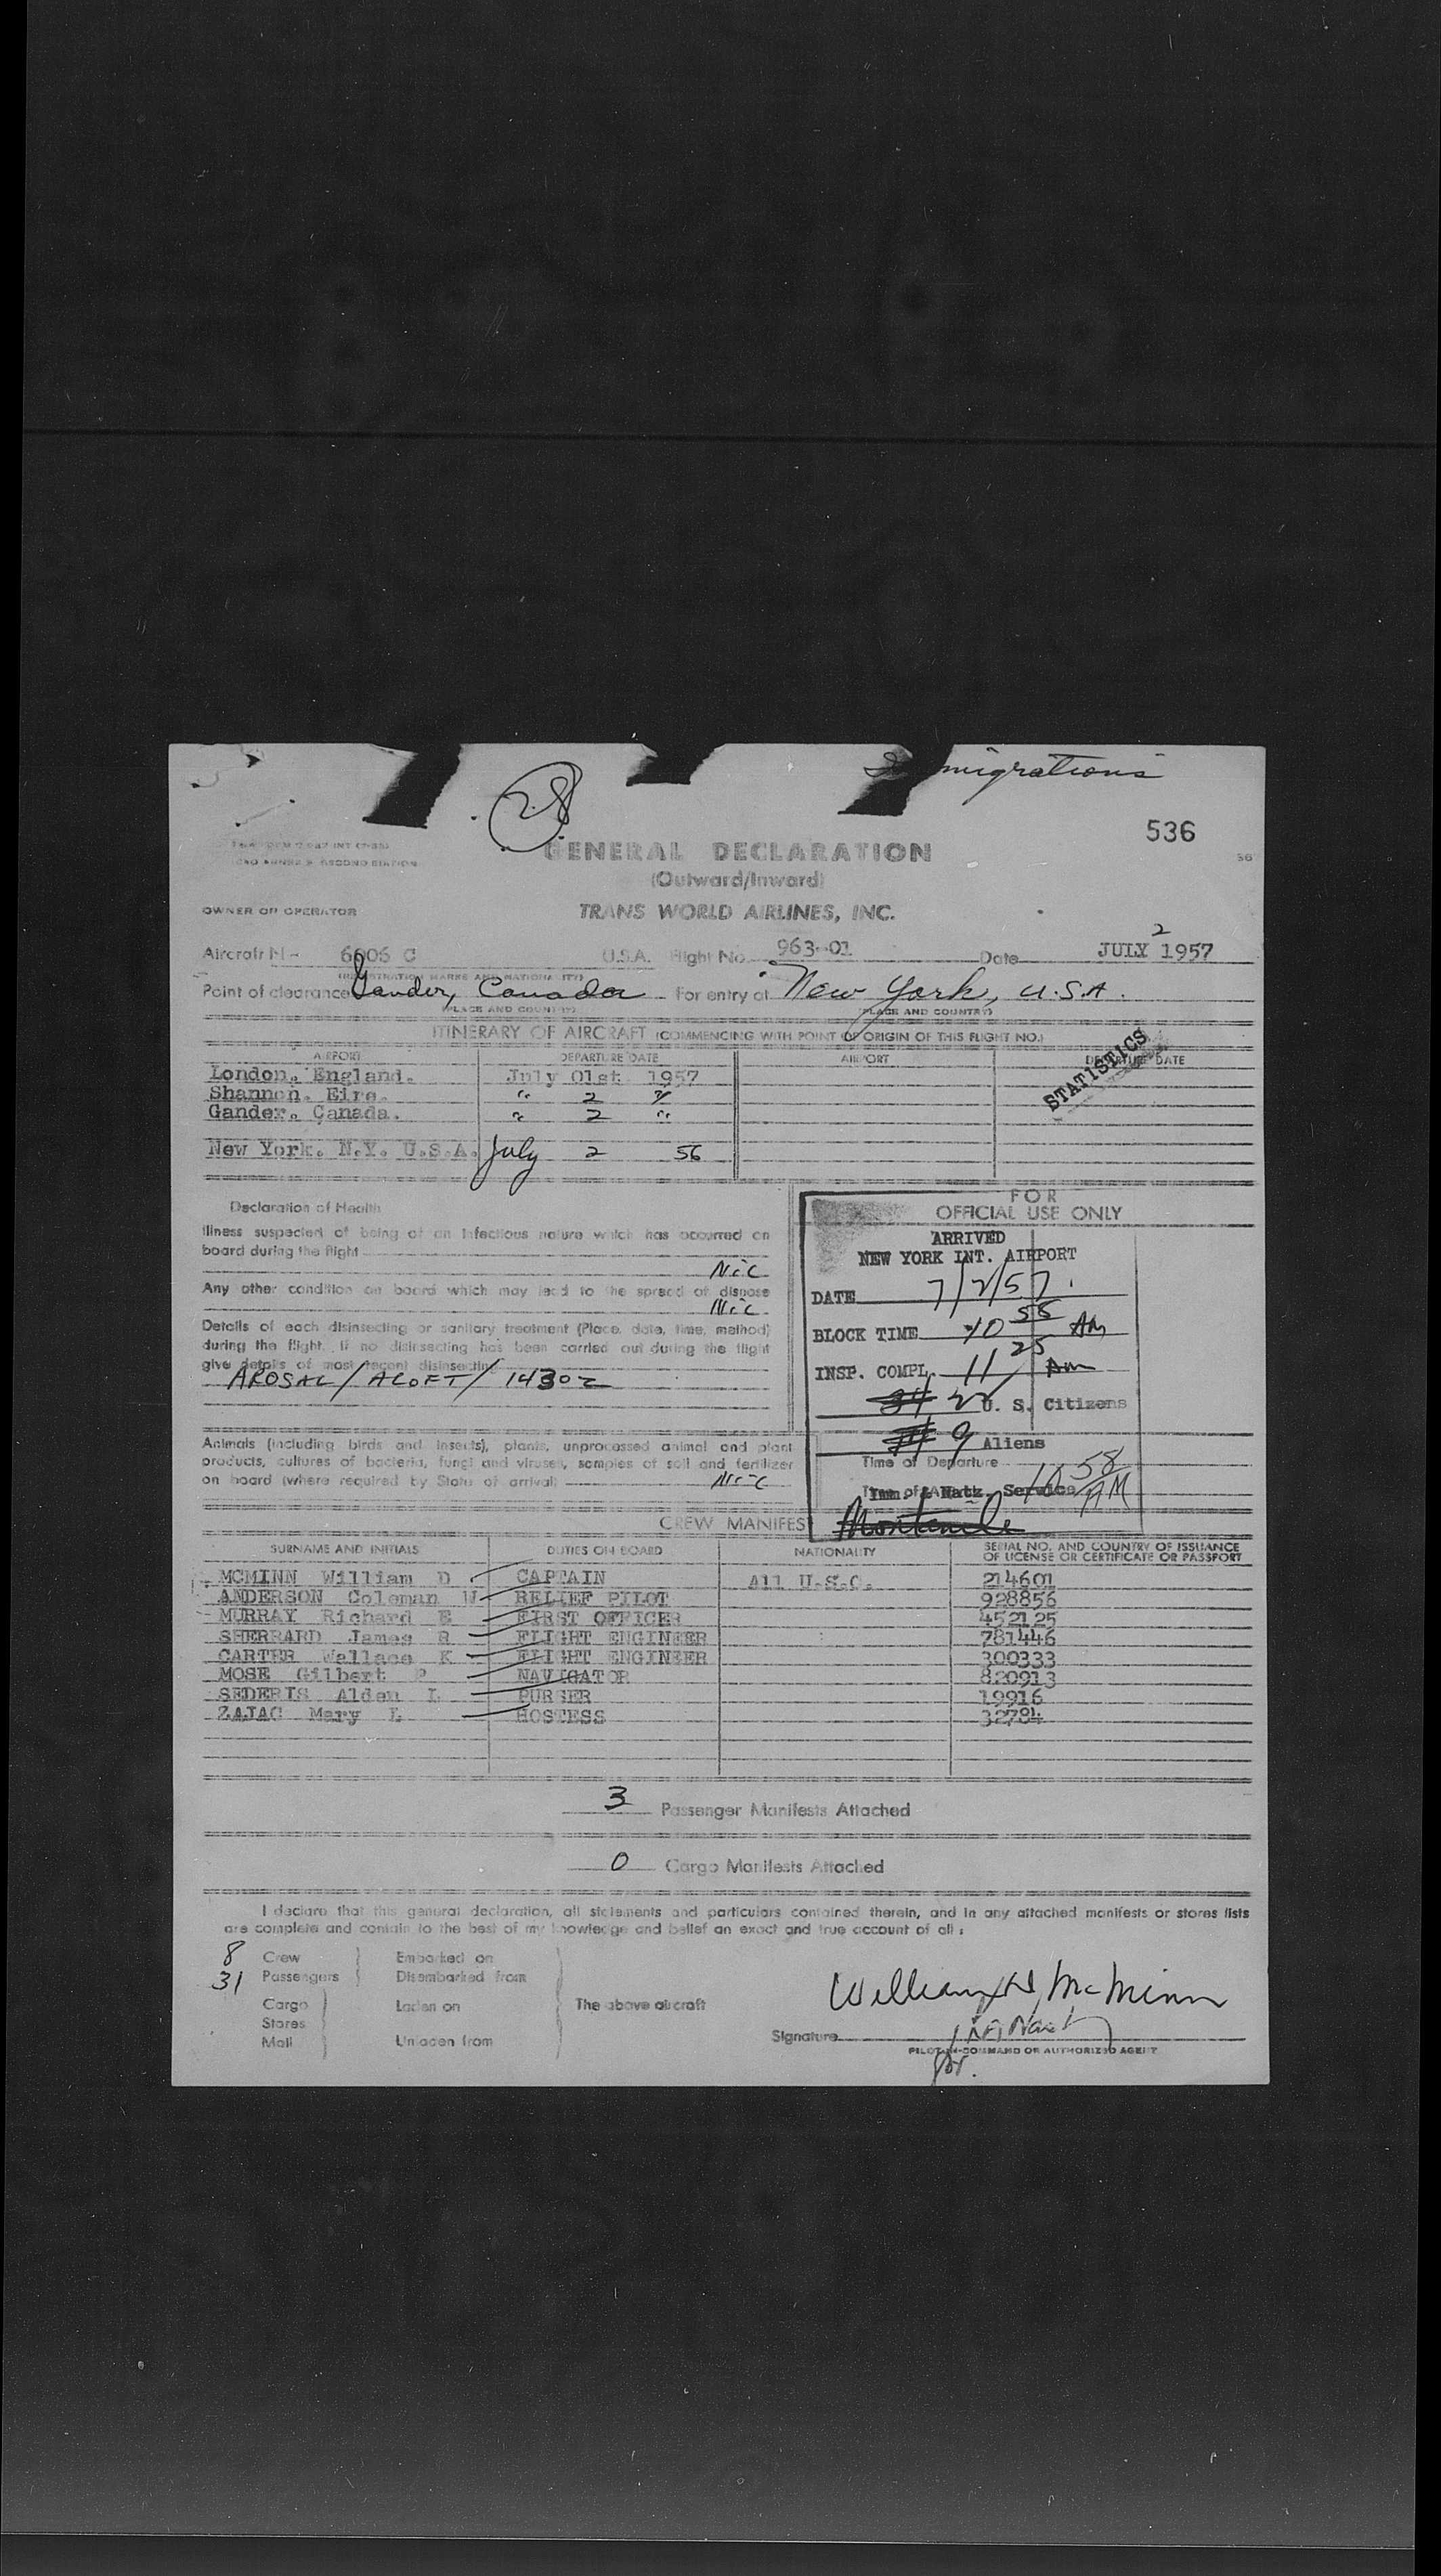 Immigrations
28
536
GENERAL DECLARATION
(Outward/Inward)
OWNER OR OPERATOR TRANS WORLD AIRLINES, INC.
Aircraft N- 6006 C U.S.A. Flight No. 963-01 Date JULY 2 1957
(REGISTRATION MARKS AND NATIONALITY)
Point of clearance Gander, Canada For entry at New York, U.S.A.
(PLACE AND COUNTRY) (PLACE AND COUNTRY)
ITINERARY OF AIRCRAFT (COMMENCING WITH POINT OF ORIGIN OF THIS FLIGHT NO.)
AIRPORT DEPARTURE DATE AIRPORT DEPARTURE DATE
STATISTICS
London. England. July 01st 1957
Shannon. Eire. " 2 "
Gander. Canada. " 2 "
New York. N.Y. U.S.A. July 2 56
Declaration of Health
Illness suspected of being of an infectious nature which has occurred on
board during the flight
Nic
Any other condition on board which may lead to the spread of disease
Nic
Details of each disinsecting or sanitary treatment (Place, date, time, method)
during the flight. If no disinsecting has been carried out during the flight
give details of most recent disinsecting
AROSAL/ALOFT/1430Z
Animals (including birds and insects), plants, unprocessed animal and plant
products, cultures of bacteria, fungi and viruses, samples of soil and fertilizer
on board (where required by State of arrival) Nic
FOR
OFFICIAL USE ONLY
ARRIVED
NEW YORK INT. AIRPORT
DATE 7/2/57
BLOCK TIME 10 55 AM
INSP. COMPL. 11 25 AM
34 22 U. S. Citizens
9 Aliens
Time of Departure
Imm. & Natz. Service
10 58 AM
CREW MANIFEST
SURNAME AND INITIALS DUTIES ON BOARD NATIONALITY SERIAL NO. AND COUNTRY OF ISSUANCE
OF LICENSE OR CERTIFICATE OR PASSPORT
MCMINN William D CAPTAIN All U.S.C. 214601
ANDERSON Coleman W RELIEF PILOT 928856
MURRAY Richard E FIRST OFFICER 452125
SHERRARD James R FLIGHT ENGINEER 781446
CARTER Wallace K FLIGHT ENGINEER 300333
MOSE Gilbert P NAVIGATOR 820913
SEDERIS Alden L PURSER 19916
ZAJAC Mary L HOSTESS 32784
3 Passenger Manifests Attached
0 Cargo Manifests Attached
I declare that this general declaration, all statements and particulars contained therein, and in any attached manifests or stores lists
are complete and contain to the best of my knowledge and belief an exact and true account of all :
8 Crew Embarked on
31 Passengers Disembarked from
Cargo Laden on The above aircraft
Stores
Mail Unladen from
William D McMinn
Signature
PILOT-IN-COMMAND OR AUTHORIZED AGENT
for.